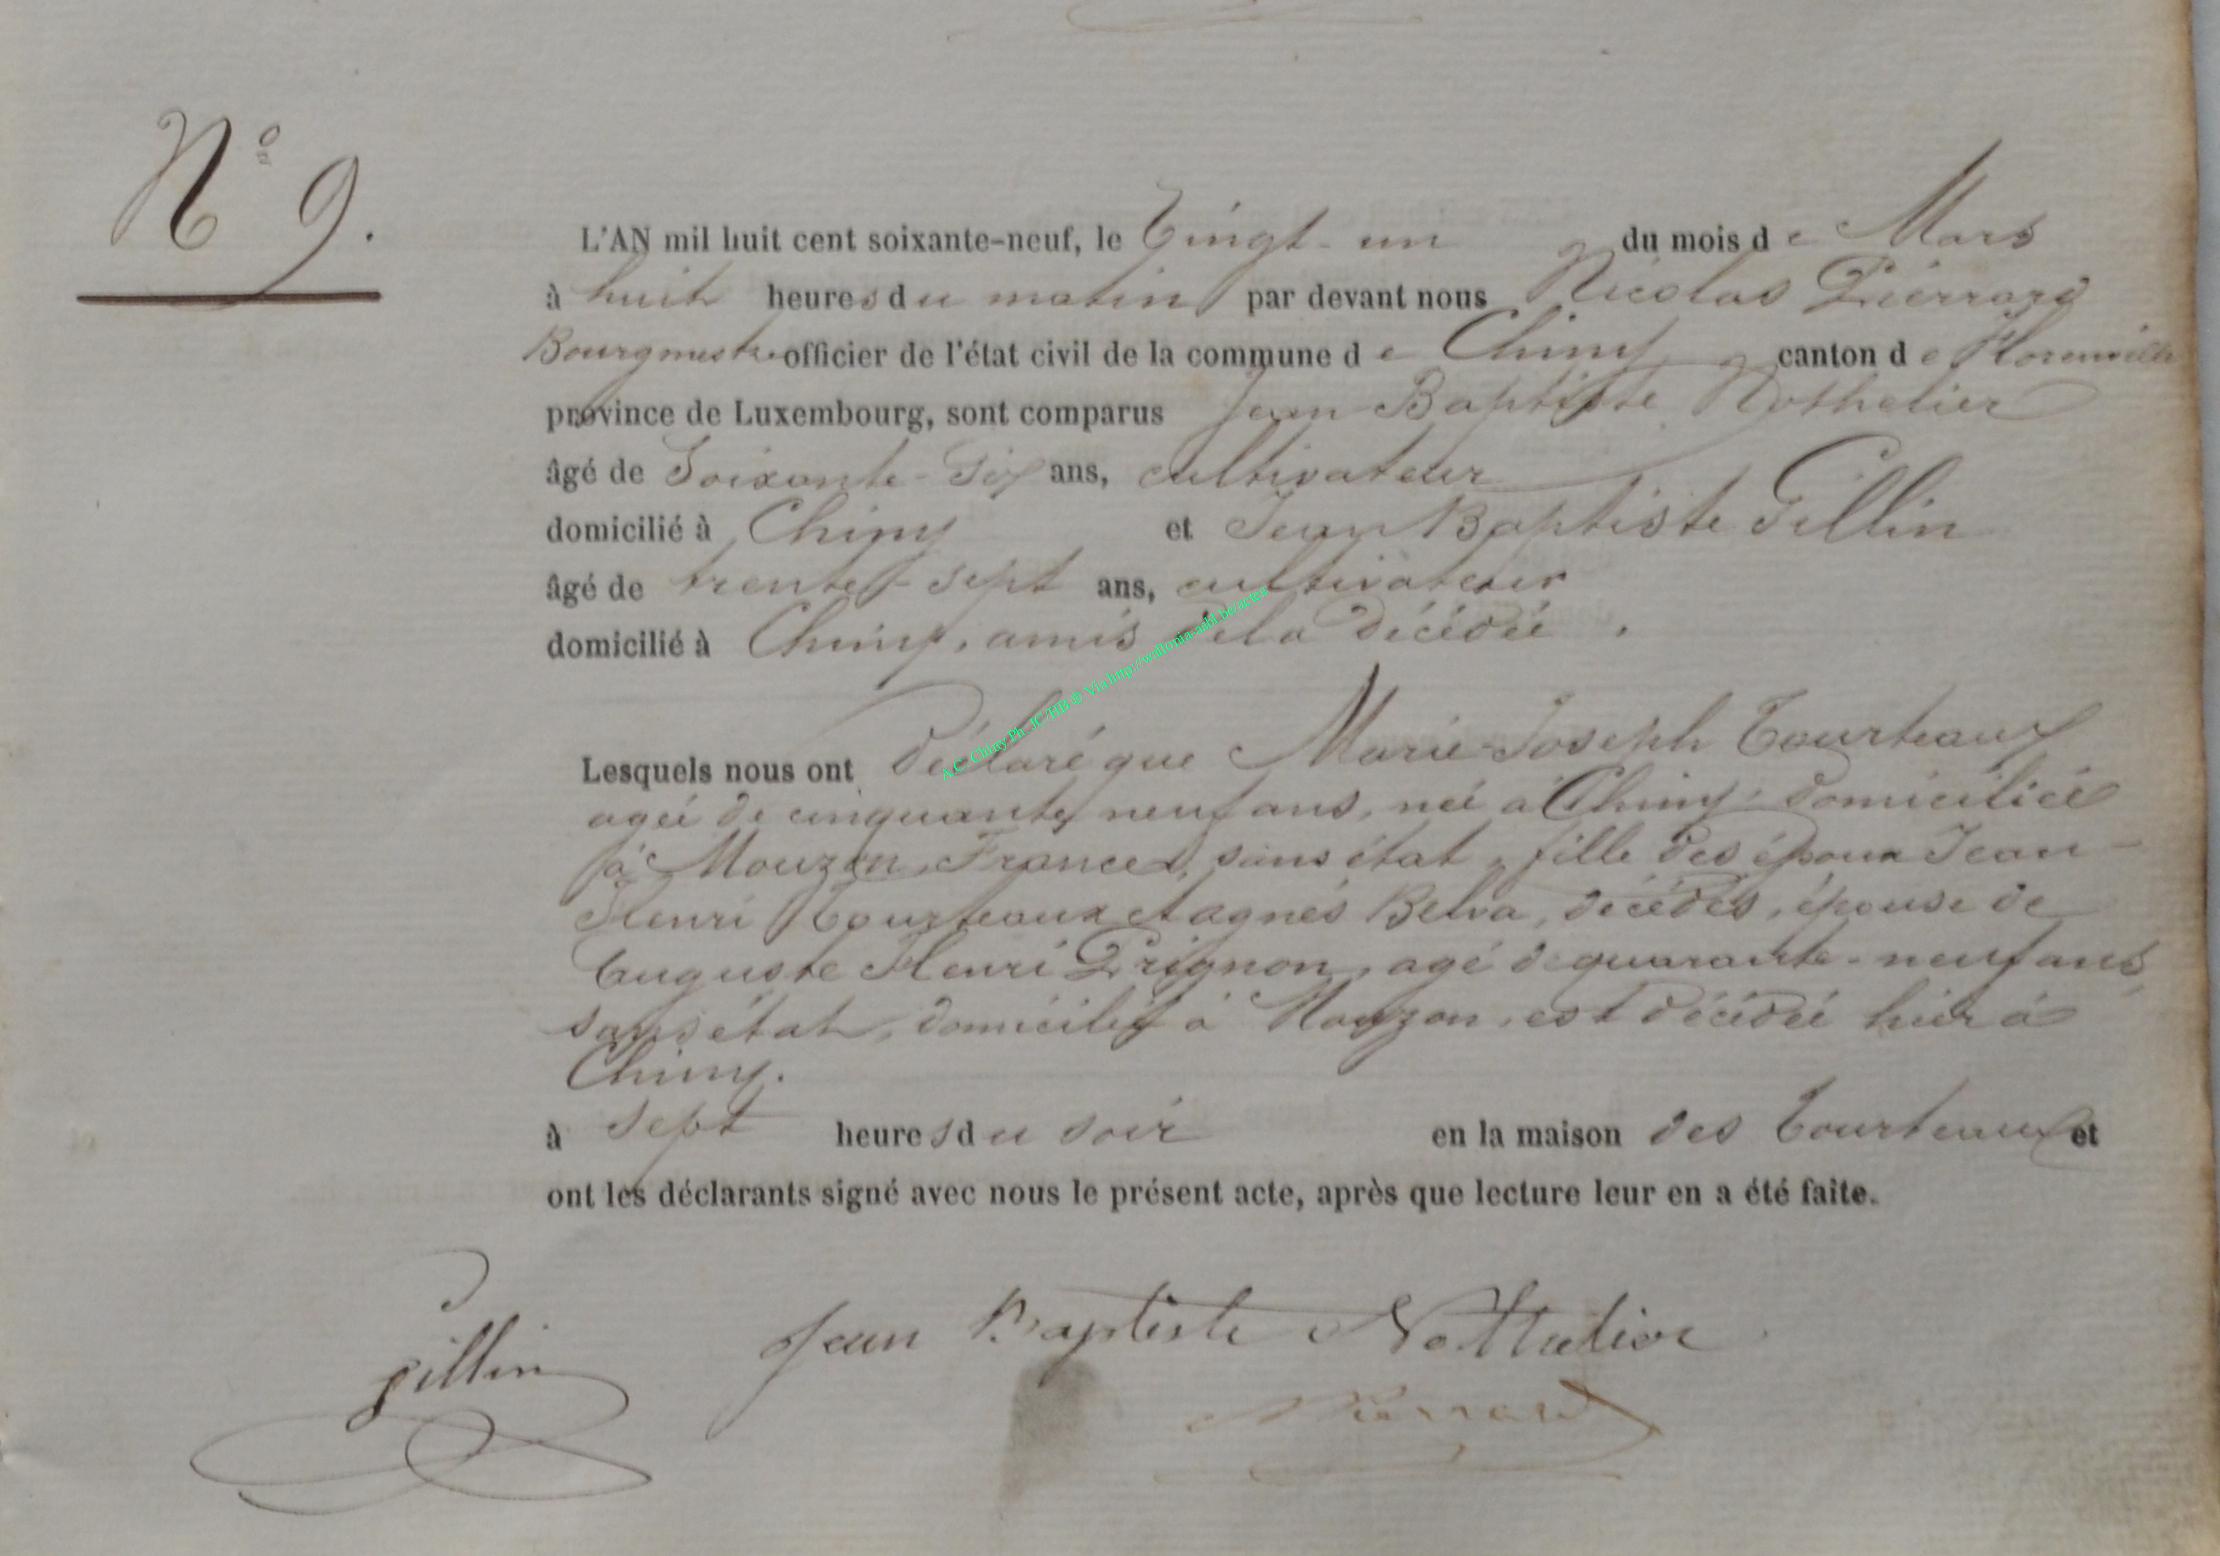 N° 9.
L'AN mil huit cent soixante-neuf, le Vingt-un du mois de Mars
à huit heures du matin par devant nous Nicolas Pierrard
Bourgmestre officier de l'état civil de la commune de Chiny canton de Florenville
province de Luxembourg, sont comparus Jean Baptiste Nothelier
âgé de Soixante-Six ans, cultivateur
domicilié à Chiny et Jean Baptiste Gillin
âgé de trente-sept ans, cultivateur
domicilié à Chiny, amis de la décédée.
A.C. Chiny Ph. JC-HB @ Via http://wallonia-asbl.be/actes
Lesquels nous ont déclaré que Marie-Joseph Tourteaux
agée de cinquante neuf ans, née à Chiny, domiciliée
à Mouzon, France, sans état, fille des époux Jean-
Henri Tourteaux et agnès Belva, décédés, épouse de
auguste Henri Prignon, agé de quarante-neuf ans,
sans état, domicilié à Mouzon, est décédée hier à
Chiny.
à sept heures du soir en la maison des Tourteaux et
ont les déclarants signé avec nous le présent acte, après que lecture leur en a été faite.
gillin Jean Baptiste Nothelier
NPierrard